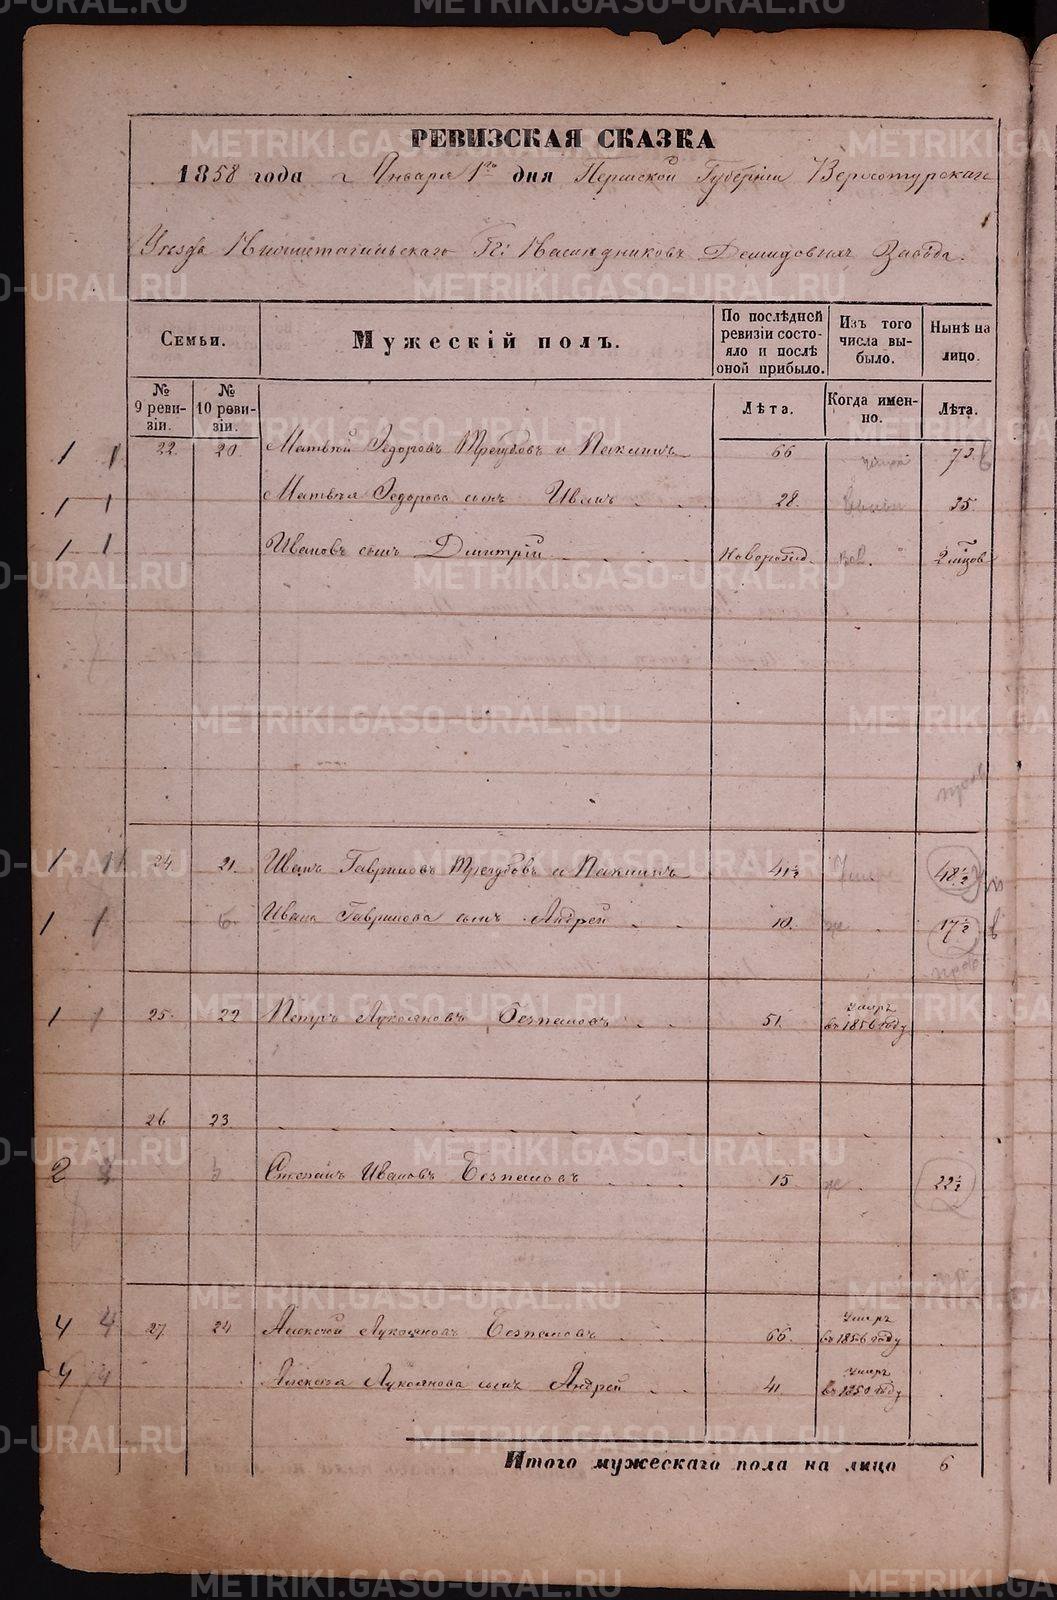 РЕВИЗСКАЯ СКАЗКА
1858 года Января 1го дня Пермской Губерніи Верхотурскаго
Уезда Нижнетагильскаго Гг. Наследниковъ Демидовыхъ Завода.
Семьи.
Мужескій полъ.
По послѣдней ревизіи состояло и послѣ оной прибыло.
Изъ того числа выбыло.
Нынѣ на лицо.
№ 9 ревизіи.
№ 10 ревизіи.
Лѣта.
Когда именно.
Лѣта.
1 1 22. 20. Матвей Федоровъ Трегубовъ и Пакинъ 66 73
1 1 Матвея Федорова сынъ Иванъ 28. 35
1 1 Ивановъ сынъ Дмитрій Новорожд. 2 мцовъ
1 1 24 21. Иванъ Гавриловъ Трегубовъ и Пакинъ 41½ 48½
1 1 Ивана Гаврилова сынъ Андрей 10. 17½
1 1 25. 22 Петръ Лукояновъ Безпаловъ 51. умеръ въ 1856 году
26 23.
2 Степанъ Ивановъ Безпаловъ 15 22½
4 4 27. 24 Алексей Лукояновъ Безпаловъ 66. умеръ въ 1856 году
4 4 Алексея Лукоянова сынъ Андрей 41 умеръ въ 1850 году
Итого мужескаго пола на лицо 6
METRIKI.GASO-URAL.RU